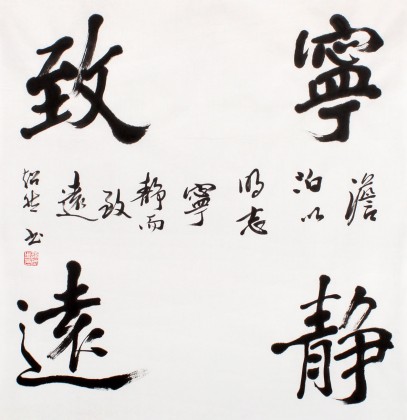 寧静
致遠
澹
泊以
明志
寧
静而
致
遠
书